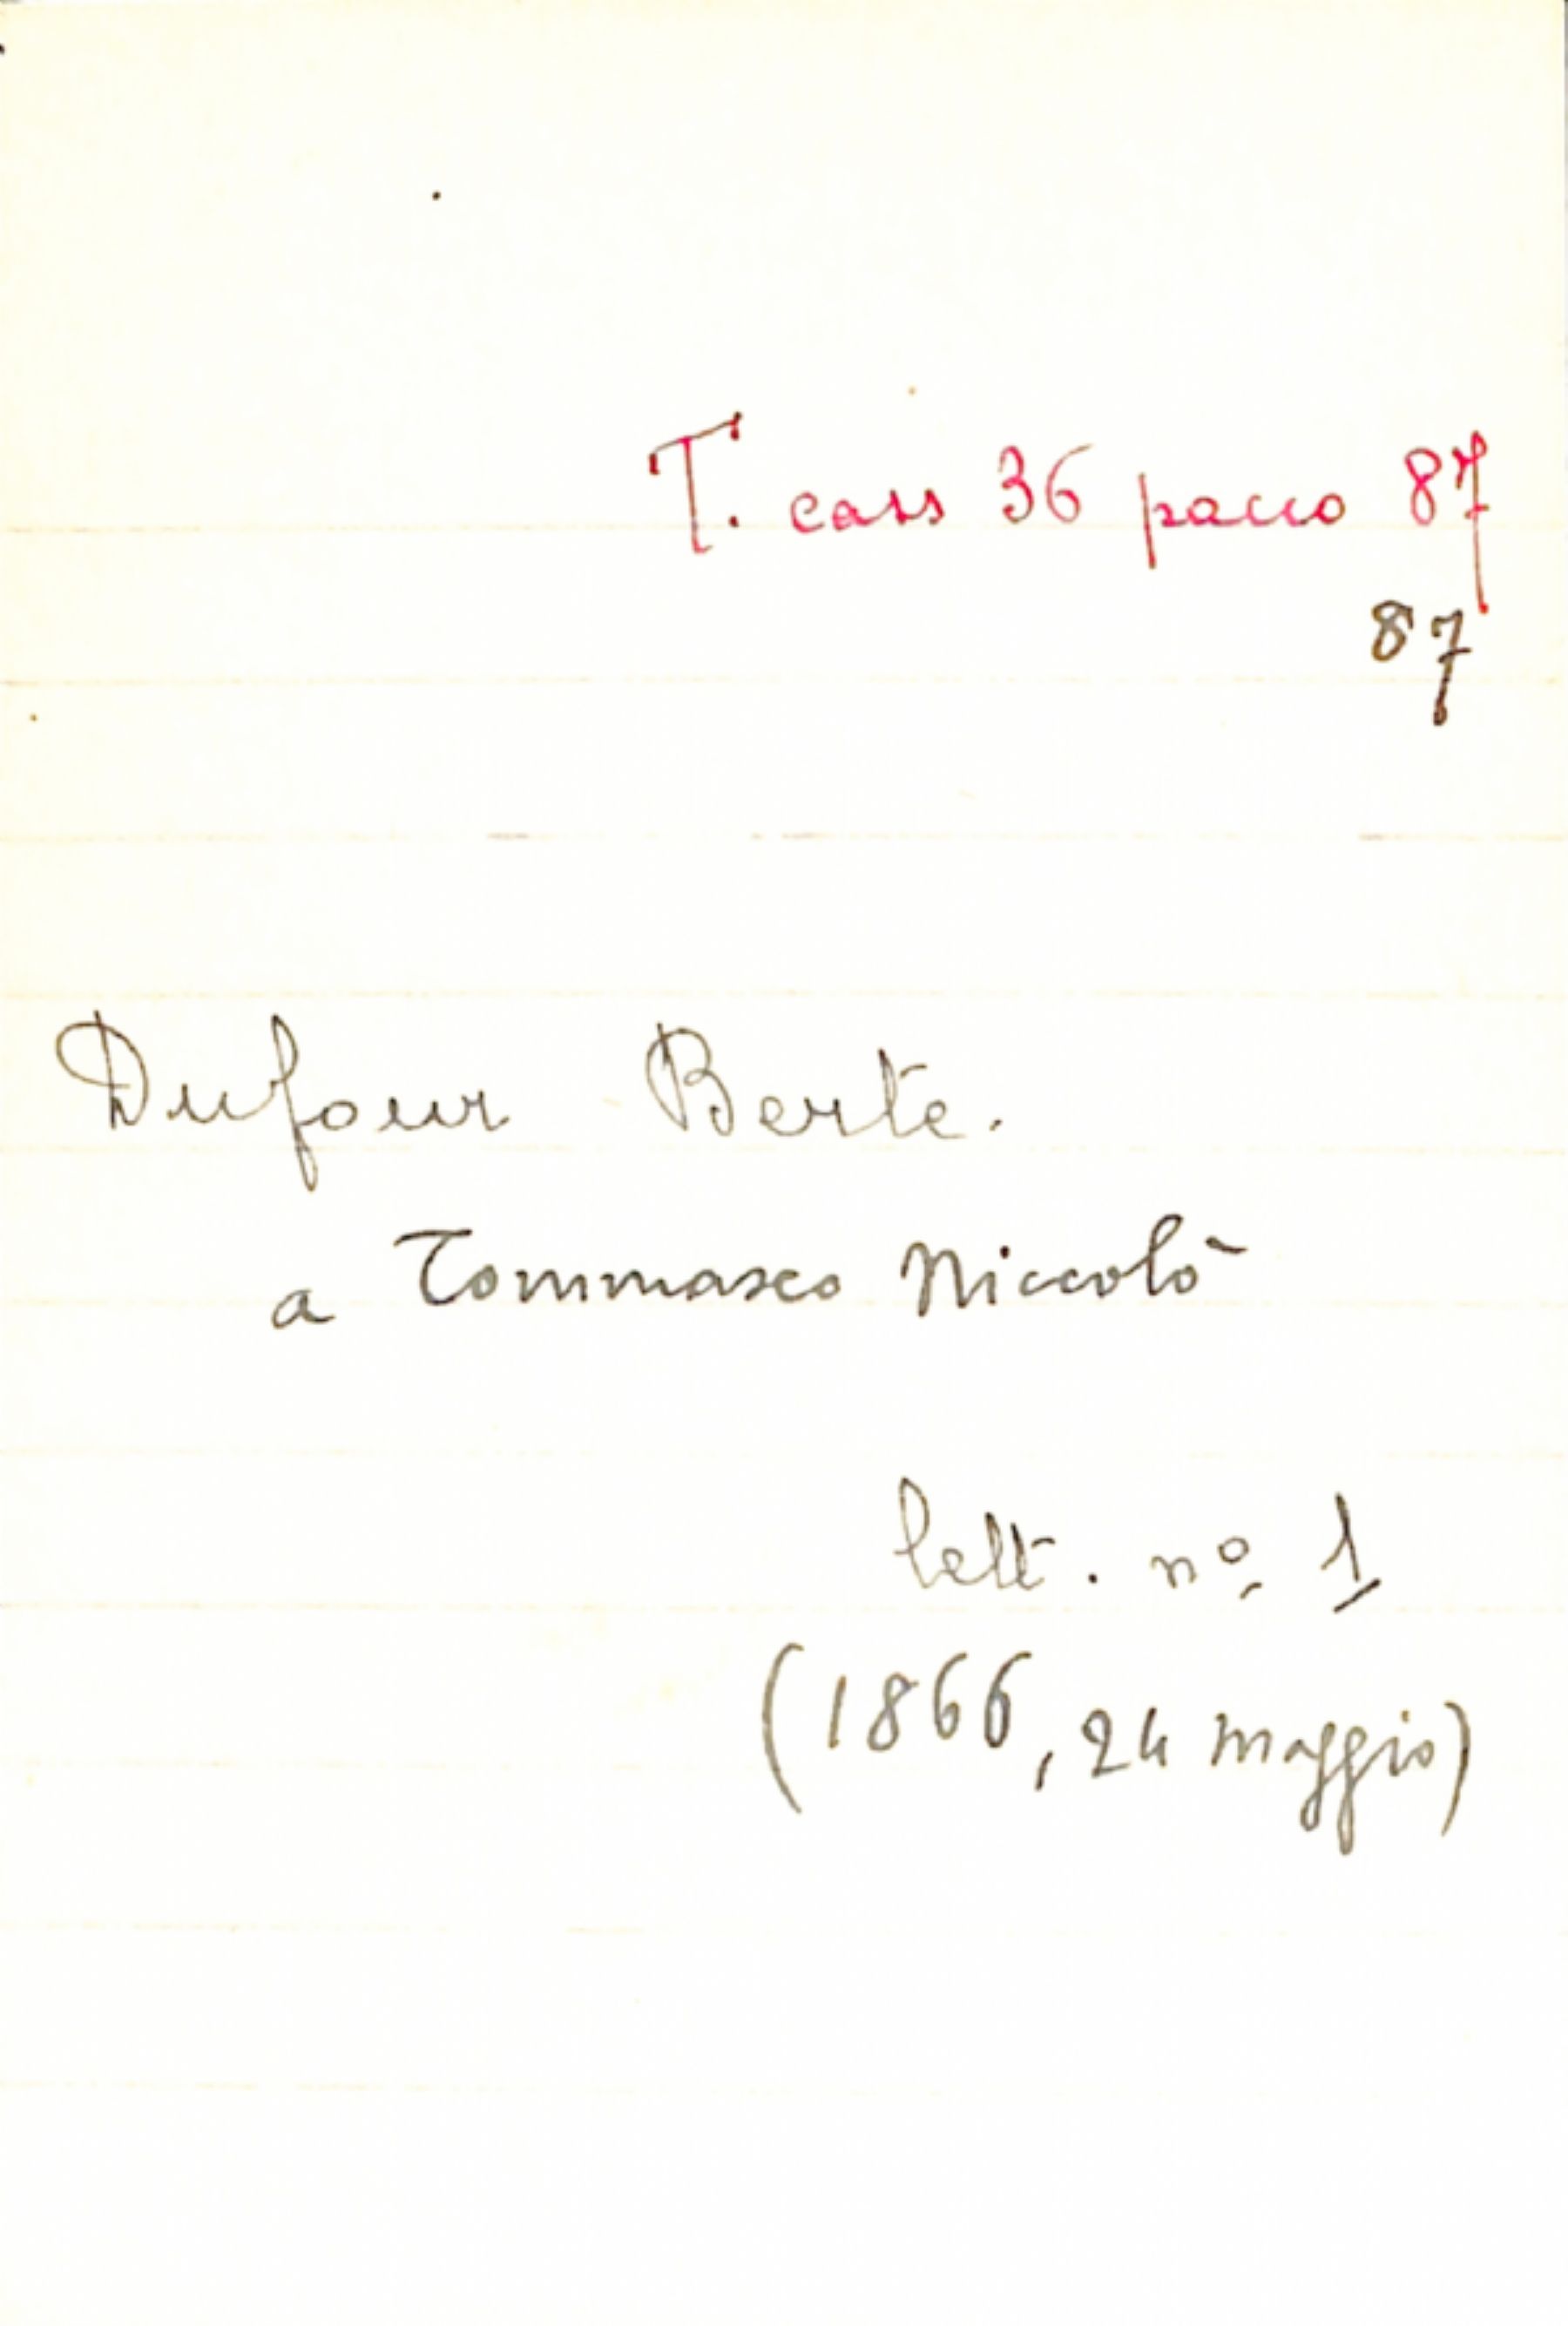 T. cass 36 pacco 87
87
Dufour Berte.
a Tommaseo Niccolò
lett. nº 1
(1866, 24 maggio)